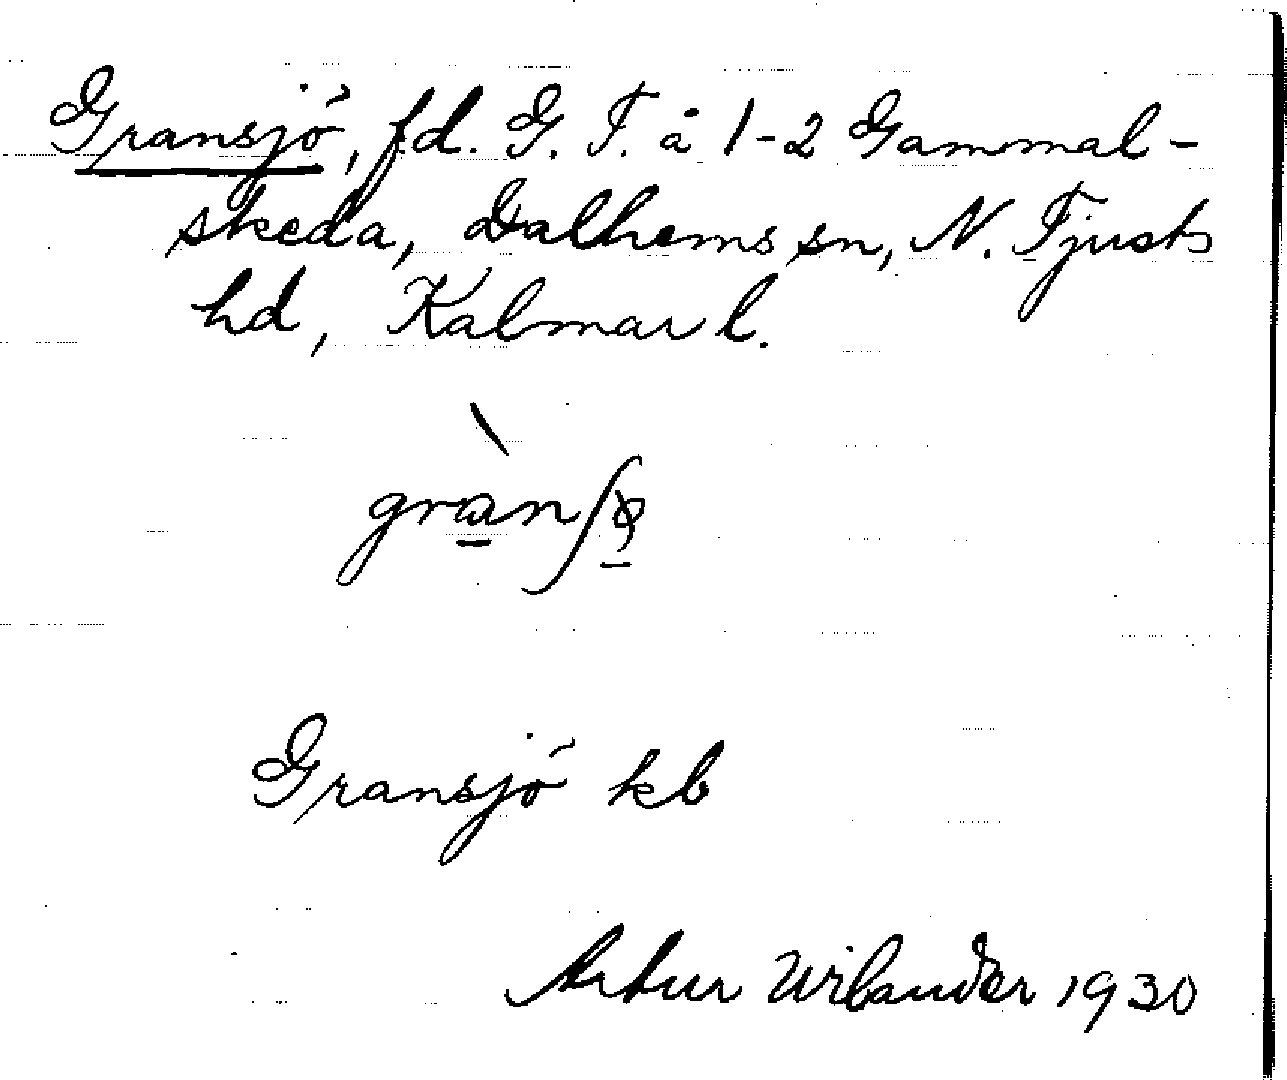 Gransjö, fd. G. T. å 1-2 Gammal-
skeda, Dalhems sn, N. Tjusts
hd, Kalmar l.
Gransjö kb
Artur Wilander 1930